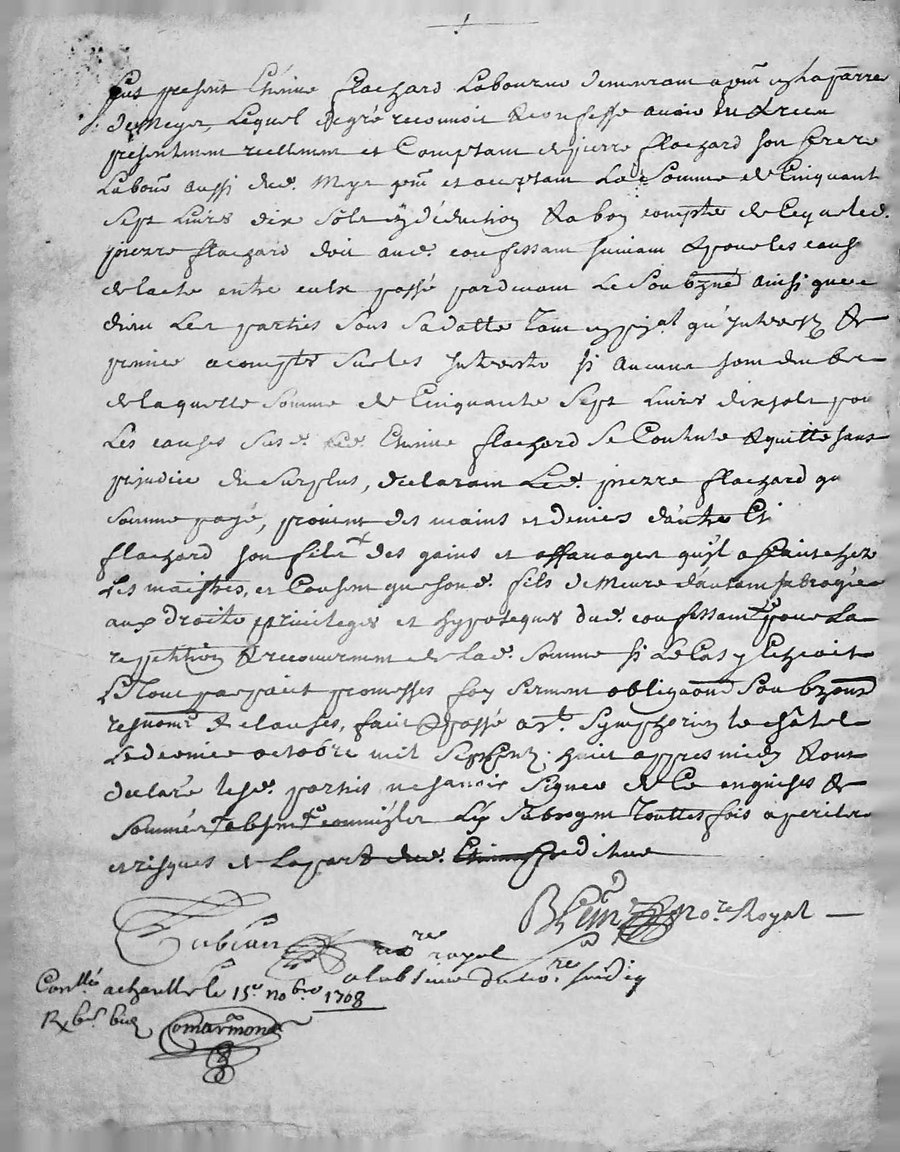 Fus present Etienne flachard Laboureur demeurant a pnt en La parre
de Meys, Lequel de gré reconnoit & confesse avoir eu & receu
presentement reellement et Comptant de pierre flachard son frere
Labour aussi dud. Meys pnt et acceptant La Somme de Cinquante
Sept Livres dix sols en deduction & a bon compte de ce que led.
pierre flachard doit aud. confessant suivant & pour les caus
de lacte entre eulx passé pardevant Le Soubzné ainsi que
dient Les parties Sous sa datte Tant en ppal qu'Interestz &
premier a compte sur les Interestz si aucuns sont deubz
de laquelle Somme de Cinquante Sept Livres dix sols pour
Les causes Susd. Led. Etienne flachard Se Contente & quitte sans
prejudice du Surplus, declarant Led. pierre flachard que
somme payé, provient des mains et deniers d'autre Et
flachard son fils des gains et affanages quyl a faint chez
Les maistres, et Consent que sond. fils demeure d'autant subrogé
aux droits privileges et hypoteques dud. confessant pour La
repetition & recouvrement de Lad. Somme si Le Cas y Echeoit
Le Tout par foy serment obligaon Soubzmons
renonc & clauses, faict & passé a St. Symphorien le châtel
Le dernier octobre mil Sept Centz huict appres midy & ont
declaré lesd. parties ne sçavoir Signer de Ce enquises &
Sommées Toutes fois a perils
et risques et La part dud. Etienne
B Nore. Royal
Fabian nore royal
a l'absence du nore. susdit
Conllé a chazelle le 15e nobre 1708
R
Comarmond